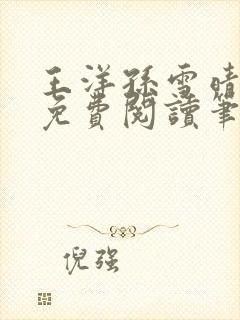 王洋孫雪晴
免費閱讀筆
倪强